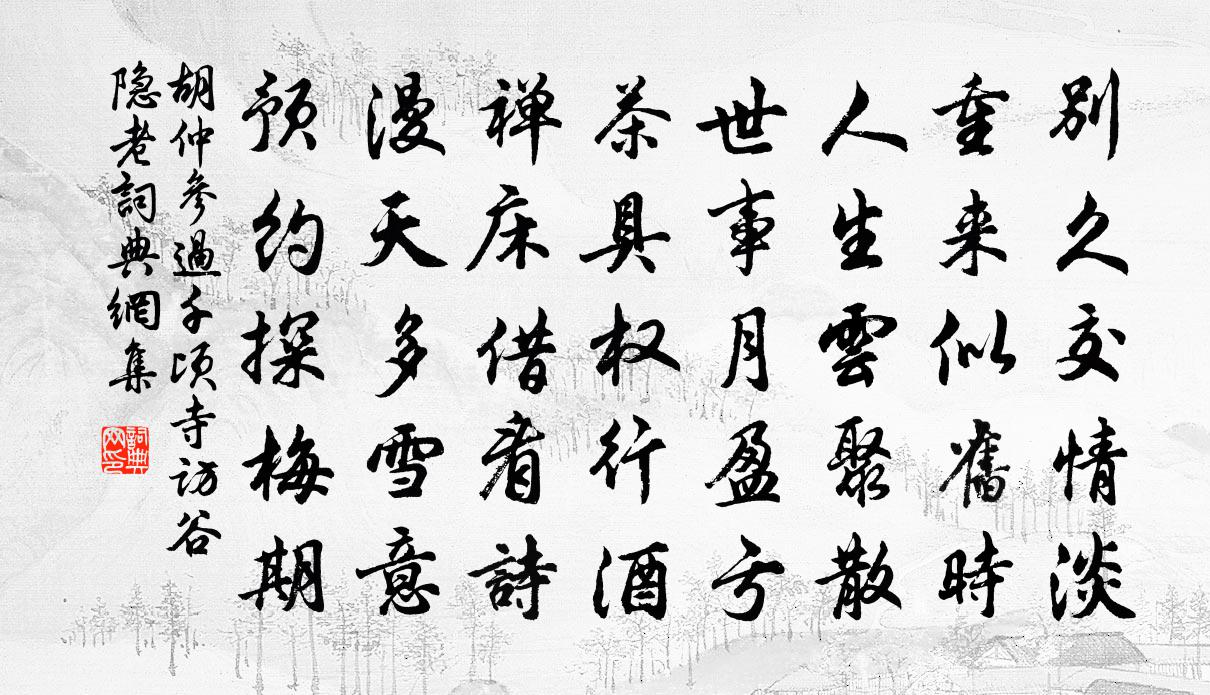 别久交情淡
重来似舊時
人生雲聚散
世事月盈亏
茶具权行酒
禅床借看詩
漫天多雪意
预约探梅期
胡仲參過千顷寺访谷
隐老詞典網集
詞典网印